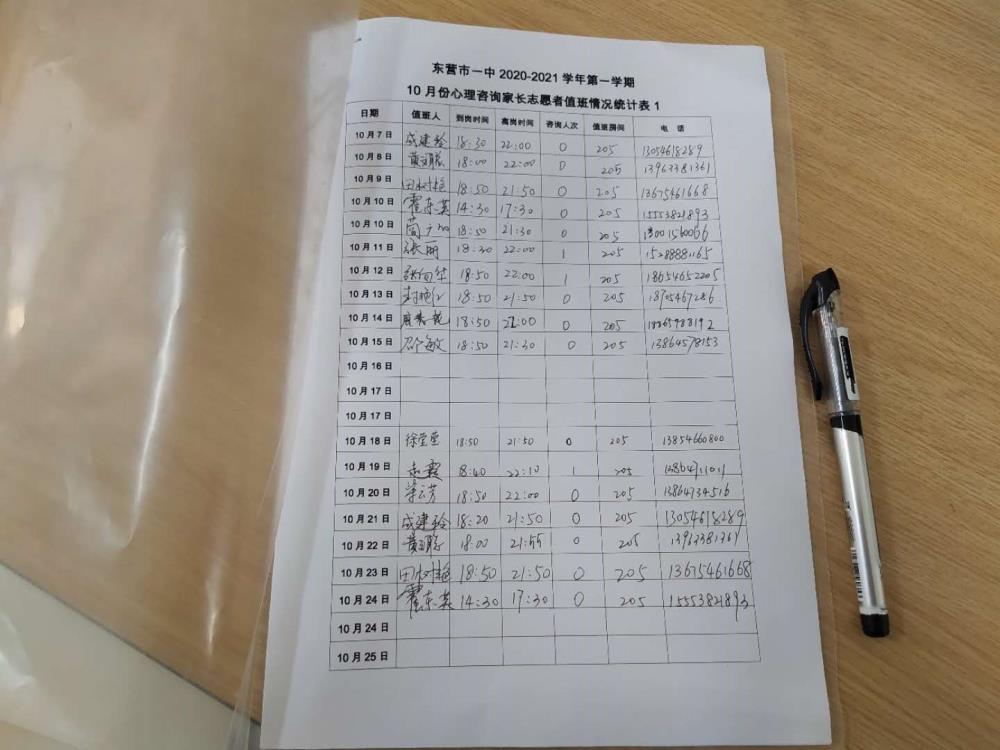 东营市一中 2020-2021 学年第一学期
10 月份心理咨询家长志愿者值班情况统计表 1
日期 值班人 到岗时间 离岗时间 咨询人次 值班房间 电 话
10 月 7 日 成建玲 18:30 22:00 0 205 13054618289
10 月 8 日 18:00 22:00 0 205 13963381361
10 月 9 日 田树艳 18:50 21:50 0 205 13675461668
10 月 10 日 霍东英 14:30 17:30 0 205 15553821893
10 月 10 日 18:50 21:30 0 205
10 月 11 日 张丽 18:30 22:00 1 205
10 月 12 日 18:50 22:00 1 205 18654652205
10 月 13 日 18:50 21:50 0 205 18705467286
10 月 14 日 18:50 22:00 0 205
10 月 15 日 邵敏 18:50 21:30 0 205 13864578153
10 月 16 日
10 月 17 日
10 月 17 日
10 月 18 日 徐莹莹 18:50 21:50 0 205 13854660800
10 月 19 日 18:40 22:10 1 205
10 月 20 日 18:50 22:00 0 205 13864734516
10 月 21 日 成建玲 18:20 21:50 0 205 13054618289
10 月 22 日 18:00 21:55 0 205 13963381361
10 月 23 日 田树艳 18:50 21:50 0 205 13675461668
10 月 24 日 霍东英 14:30 17:30 0 205 15553821893
10 月 24 日
10 月 25 日